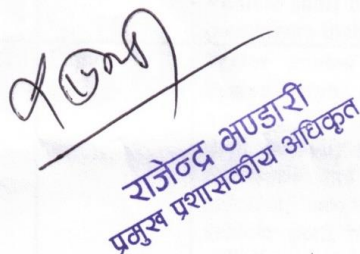 राजेन्द्र भण्डारी
प्रमुख प्रशासकीय अधिकृत